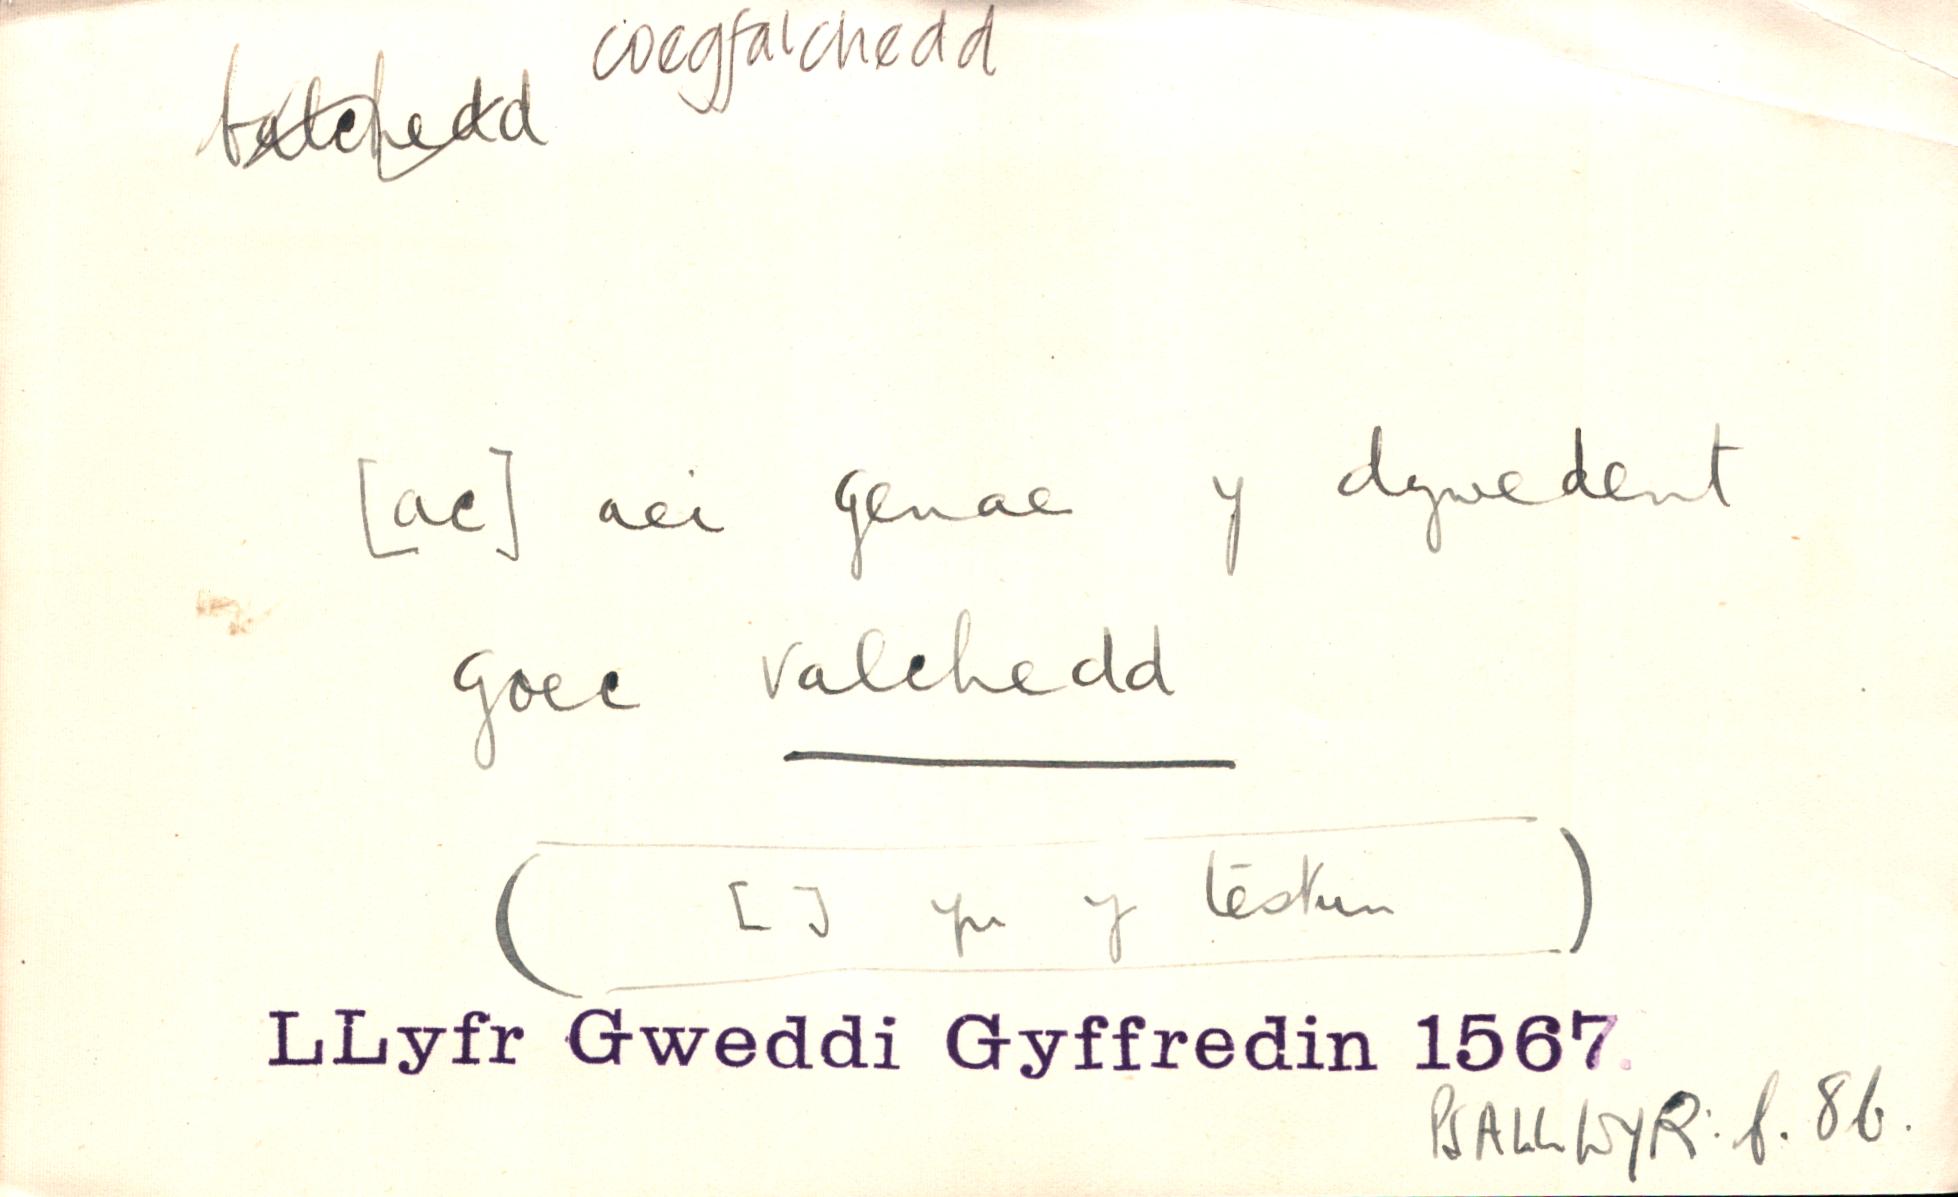 coegfalchedd
balchedd
[ac] aei genae y dywedent
goec valchedd
( [ ] yn y testun )
LLyfr Gweddi Gyffredin 1567.
PSALLWYR: f. 8b.